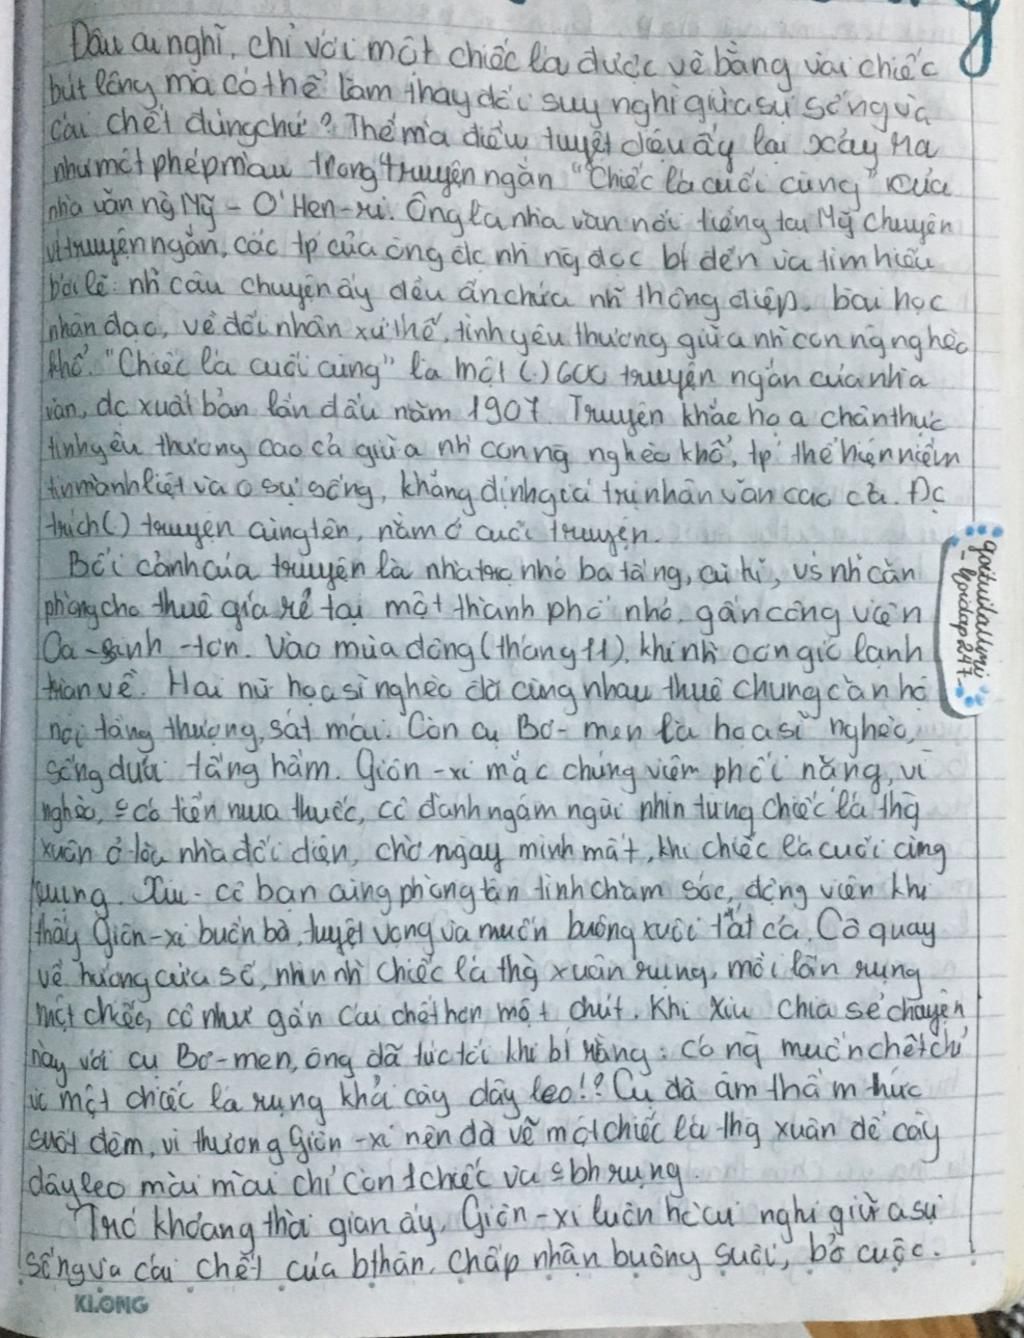 Đâu ai nghĩ, chỉ với một chiếc lá được vẽ bằng vài chiếc
bút lông mà có thể làm thay đổi suy nghĩ giữa sự sống và
cái chết đúng chứ? Thế mà điều tuyệt diệu ấy lại xảy ra
như một phép màu trong truyện ngắn "Chiếc lá cuối cùng" của
nhà văn ng Mỹ - O' Hen-ri. Ông là nhà văn nổi tiếng tại Mỹ chuyên
viết truyện ngắn, các tp của ông đc nh ng đọc bt đến và tìm hiểu
bởi lẽ: nh câu chuyện ấy đều ẩn chứa nh thông điệp, bài học
nhân đạo, về đối nhân xử thế, tình yêu thương giữa nh con ng nghèo
khổ. "Chiếc lá cuối cùng" là một (.) 600 truyện ngắn của nhà
văn, đc xuất bản lần đầu năm 1907. Truyện khắc họa chân thực
tình yêu thương cao cả giữa nh con ng nghèo khổ, tp thể hiện niềm
tin mãnh liệt vào sự sống, khẳng định giá trị nhân văn cao cả. Đc
trích (.) truyện cùng tên, nằm ở cuối truyện.
Bối cảnh của truyện là nhà trọ nhỏ ba tầng, cũ kĩ, vs nh căn
phòng cho thuê giá rẻ tại một thành phố nhỏ, gần công viên
Oa-sinh-tơn. Vào mùa đông (tháng 11), khi nh cơn gió lạnh
tràn về. Hai nữ họa sĩ nghèo đã cùng nhau thuê chung căn hộ
nơi tầng thượng, sát mái. Còn cụ Bơ-men là họa sĩ nghèo,
sống dưới tầng hầm. Giôn-xi mắc chứng viêm phổi nặng, vì
nghèo, có tiền mua thuốc, cô đành ngậm ngùi nhìn từng chiếc lá thg
xuân ở lầu nhà đối diện, chờ ngày mình mất, khi chiếc lá cuối cùng
rụng. Xiu - cô bạn cùng phòng tận tình chăm sóc, động viên khi
thấy Giôn-xi buồn bã, tuyệt vọng và muốn buông xuôi tất cả. Cô quay
về hướng cửa sổ, nhìn nh chiếc lá thg xuân rụng, mỗi lần rụng
một chiếc, cô như gần cái chết hơn một chút. Khi Xiu chia sẻ chuyện
này với cụ Bơ-men, ông đã tức tối khi bt rằng: có ng muốn chết chỉ
vì một chiếc lá rụng khỏi cây dây leo!? Cụ đã âm thầm thức
suốt đêm, vì thương Giôn-xi nên đã vẽ một chiếc lá thg xuân để cây
dây leo mãi mãi chỉ còn 1 chiếc và bh rụng.
Trc khoảng thời gian ấy, Giôn-xi luôn hoài nghi giữa sự
sống và cái chết của bthân. Chấp nhận buông xuôi, bỏ cuộc.
KLONG